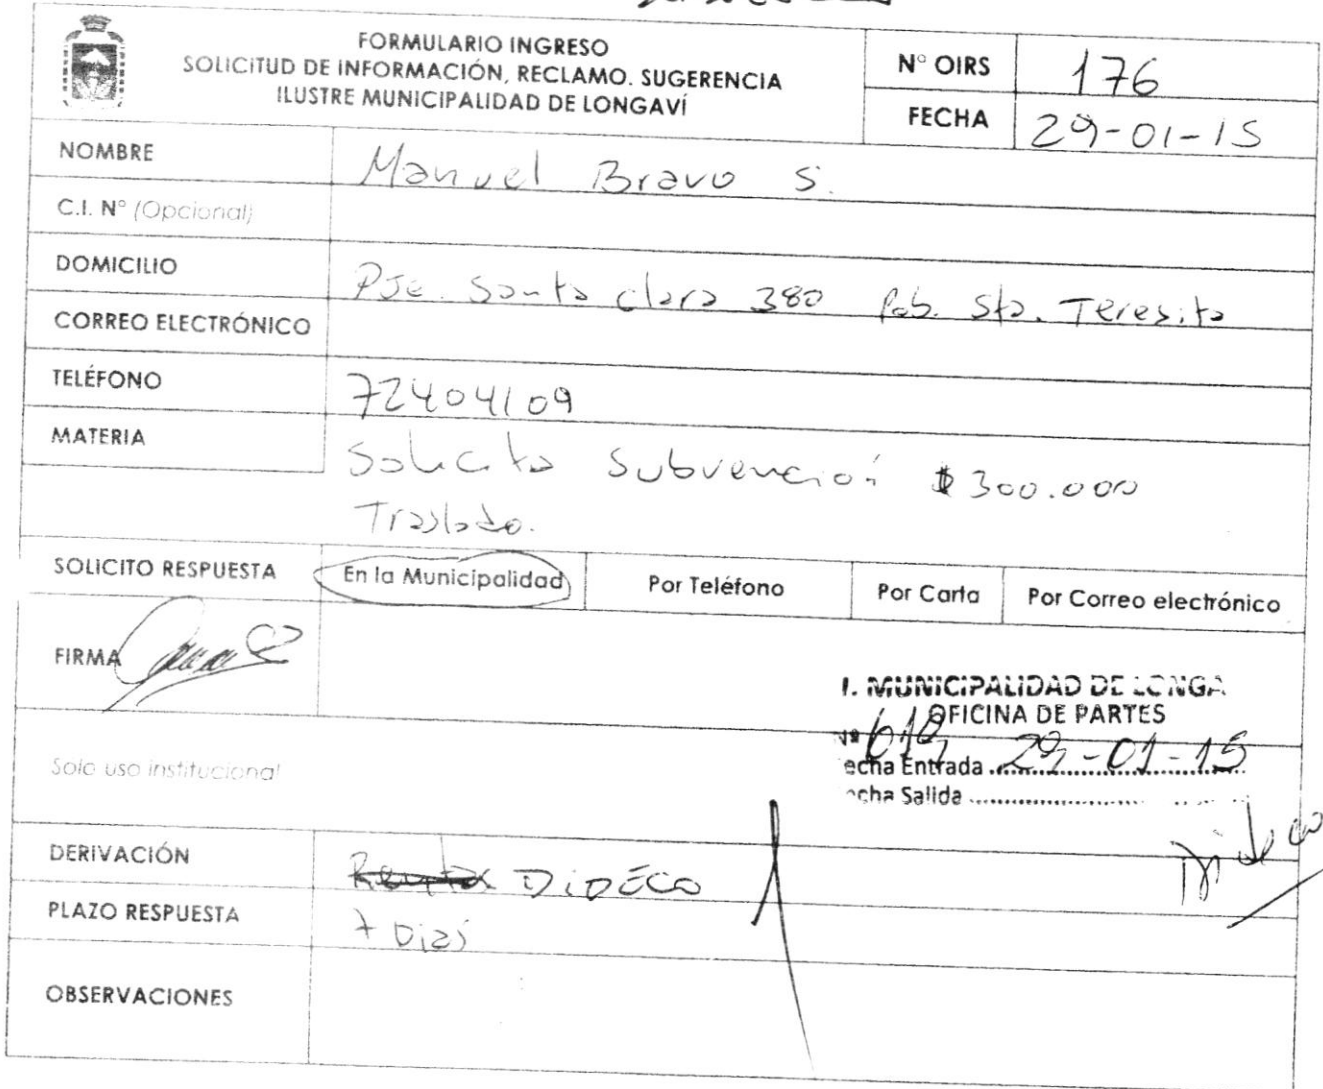 FORMULARIO INGRESO
SOLICITUD DE INFORMACIÓN, RECLAMO. SUGERENCIA
ILUSTRE MUNICIPALIDAD DE LONGAVÍ
N° OIRS 176
FECHA 29-01-15
NOMBRE Manuel Bravo S.
C.I. N° (Opcional)
DOMICILIO Pje. Santa Clara 380 Pob. Sta. Teresita
CORREO ELECTRÓNICO
TELÉFONO 72404109
MATERIA Solicito Subvención $300.000
Traslado.
SOLICITO RESPUESTA En la Municipalidad Por Teléfono Por Carta Por Correo electrónico
FIRMA
I. MUNICIPALIDAD DE LONGA
OFICINA DE PARTES
Nº 619
echa Entrada 29-01-15
echa Salida
Solo uso institucional
Dideco
DERIVACIÓN DIDECO
PLAZO RESPUESTA 7 Días
OBSERVACIONES